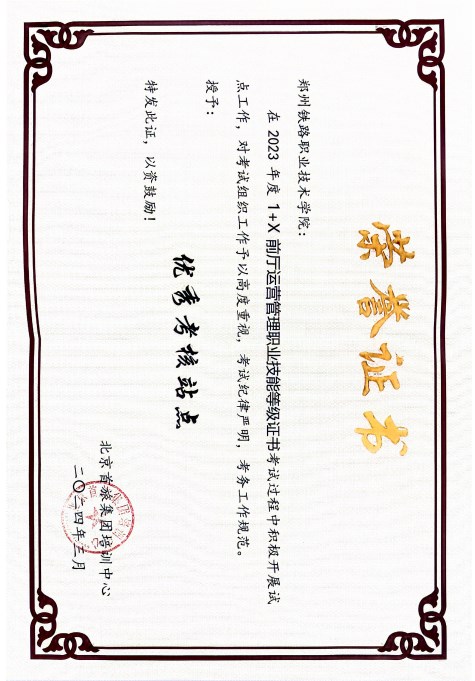 荣誉证书
郑州铁路职业技术学院：
在 2023 年度 1+X 前厅运营管理职业技能等级证书考试过程中积极开展试
点工作，对考试组织工作予以高度重视，考试纪律严明，考务工作规范。
授予：
优秀考核站点
特发此证，以资鼓励！
北京首旅集团培训中心
二〇二四年三月